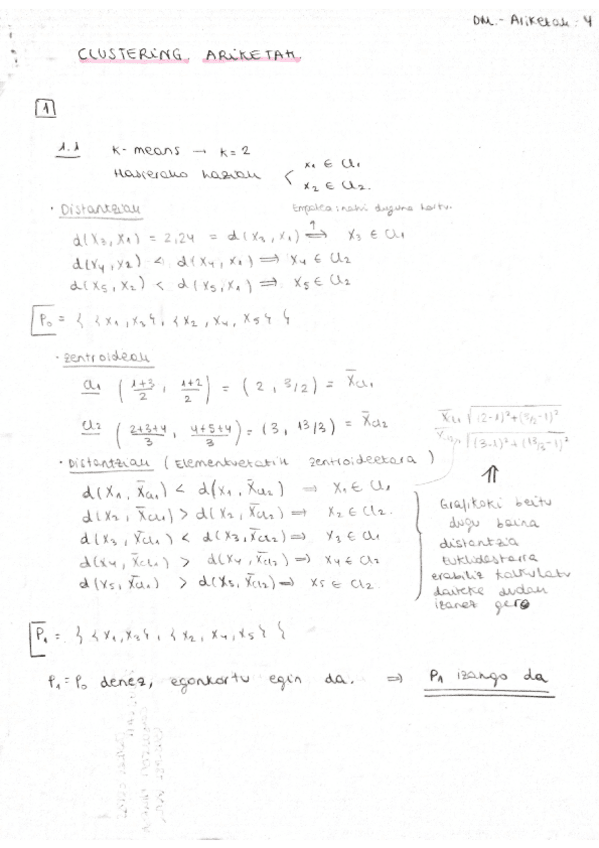 DM.- Ariketak: 4
CLUSTERING ARIKETAK
1
1.1 K-means → K=2
Hasierako haziak < x₁ ∈ Cl₁
x₂ ∈ Cl₂.
· Distantziak
Enpatea: nahi duguna hartu.
d(x₃, x₁) = 2,24 = d(x₃, x₁) ⟹ x₃ ∈ Cl₁
d(x₄, x₂) < d(x₄, x₁) ⟹ x₄ ∈ Cl₂
d(x₅, x₂) < d(x₅, x₁) ⟹ x₅ ∈ Cl₂
P₀ = { {x₁, x₃}, {x₂, x₄, x₅} }
· Zentroideak
Cl₁ ( (1+3)/2 , (1+2)/2 ) = (2, 3/2) = X̄cl₁
Cl₂ ( (2+3+4)/3 , (4+5+4)/3 ) = (3, 13/3) = X̄cl₂
X̄cl₁ √(2-1)²+(3/2-1)²
X̄cl₂ √(3-1)²+(13/3-1)²
· Distantziak (Elementuetatik zentroideetara)
d(x₁, X̄cl₁) < d(x₁, X̄cl₂) ⟹ x₁ ∈ Cl₁
d(x₂, X̄cl₁) > d(x₂, X̄cl₂) ⟹ x₂ ∈ Cl₂.
d(x₃, X̄cl₁) < d(x₃, X̄cl₂) ⟹ x₃ ∈ Cl₁
d(x₄, X̄cl₁) > d(x₄, X̄cl₂) ⟹ x₄ ∈ Cl₂
d(x₅, X̄cl₁) > d(x₅, X̄cl₂) ⟹ x₅ ∈ Cl₂
⇑
Grafikoki beitu
dugu baina
distantzia
Euklidestarra
erabiliz kalkulatu
daiteke dudan
izanez gero
P₁ = { {x₁, x₃}, {x₂, x₄, x₅} }
P₁ = P₀ denez, egonkortu egin da. ⟹ P₁ izango da